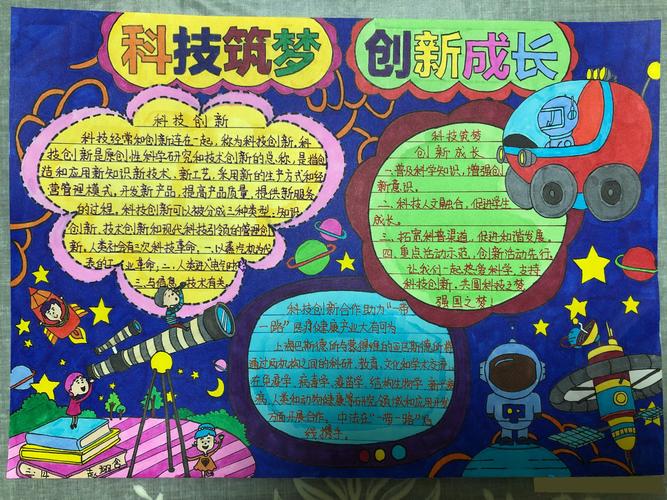 科技筑梦 创新成长
科技创新
科技经常和创新连在一起,称为科技创新,科
技创新是原创性科学研究和技术创新的总称,是指创
造和应用新知识新技术、新工艺,采用新的生产方式和经
营管理模式,开发新产品,提高产品质量,提供新服务
的过程,科技创新可以被分成三种类型:知识
创新、技术创新和现代科技引领的管理创
新。人类社会有三次科技革命,一.以蒸汽机为代
表的工业革命,二.人类进入电气时代
三.与信息 技术有关
科技筑梦
创新成长
一.普及科学知识,增强创
新意识。
二.科技人文融合,促进学生
成长。
三.拓宽科普渠道,促进和谐发展。
四.重点活动示范,创新活动先行
让我们一起热爱科学,支持
科技创新,共圆科技之梦
强国之梦!
科技创新合作助力“一带
一路”医疗健康产业大有可为
上海巴斯德所与 巴斯德所将
通过两机构之间的科研、教育、文化和学术交流,
在免疫学、病毒学、疫苗学、结构生物学、新
人类和动物健康等研究领域和应用开发
方面开展合作。中法在“一带一路”
线携手。